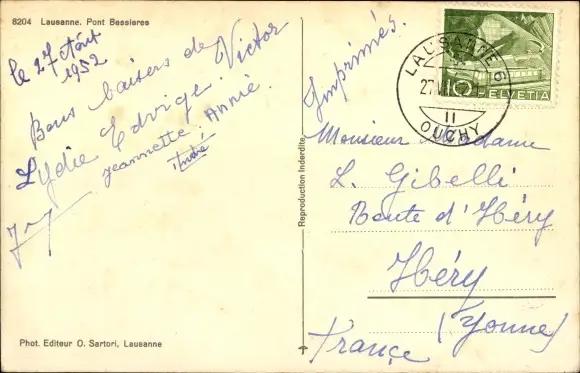 8204 Lausanne. Pont Bessieres
le 27 Août
1952
Bons baisers de Victor
Lydie Edvige
Jeannette. Annie.
André
Phot. Editeur O. Sartori, Lausanne
Reproduction Interdite
Imprimés.
LAUSANNE 6
27.
II
OUCHY
10
HELVETIA
Monsieur Madame
L. Gibelli
Route d'Héry
Héry
(Yonne)
France